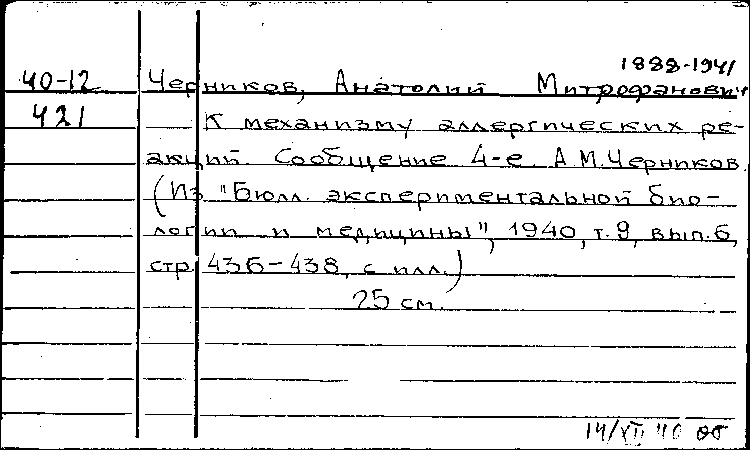 1888-1941
40-12 Черников, Анатолий Митрофанович
421 К механизму аллергических ре-
акций. Сообщение 4-е. А.М.Черников.
(Из "Бюлл. экспериментальной био-
логии и медицины", 1940, т.9, вып.6,
стр. 436-438, с илл.)
25 см.
14/XII 40